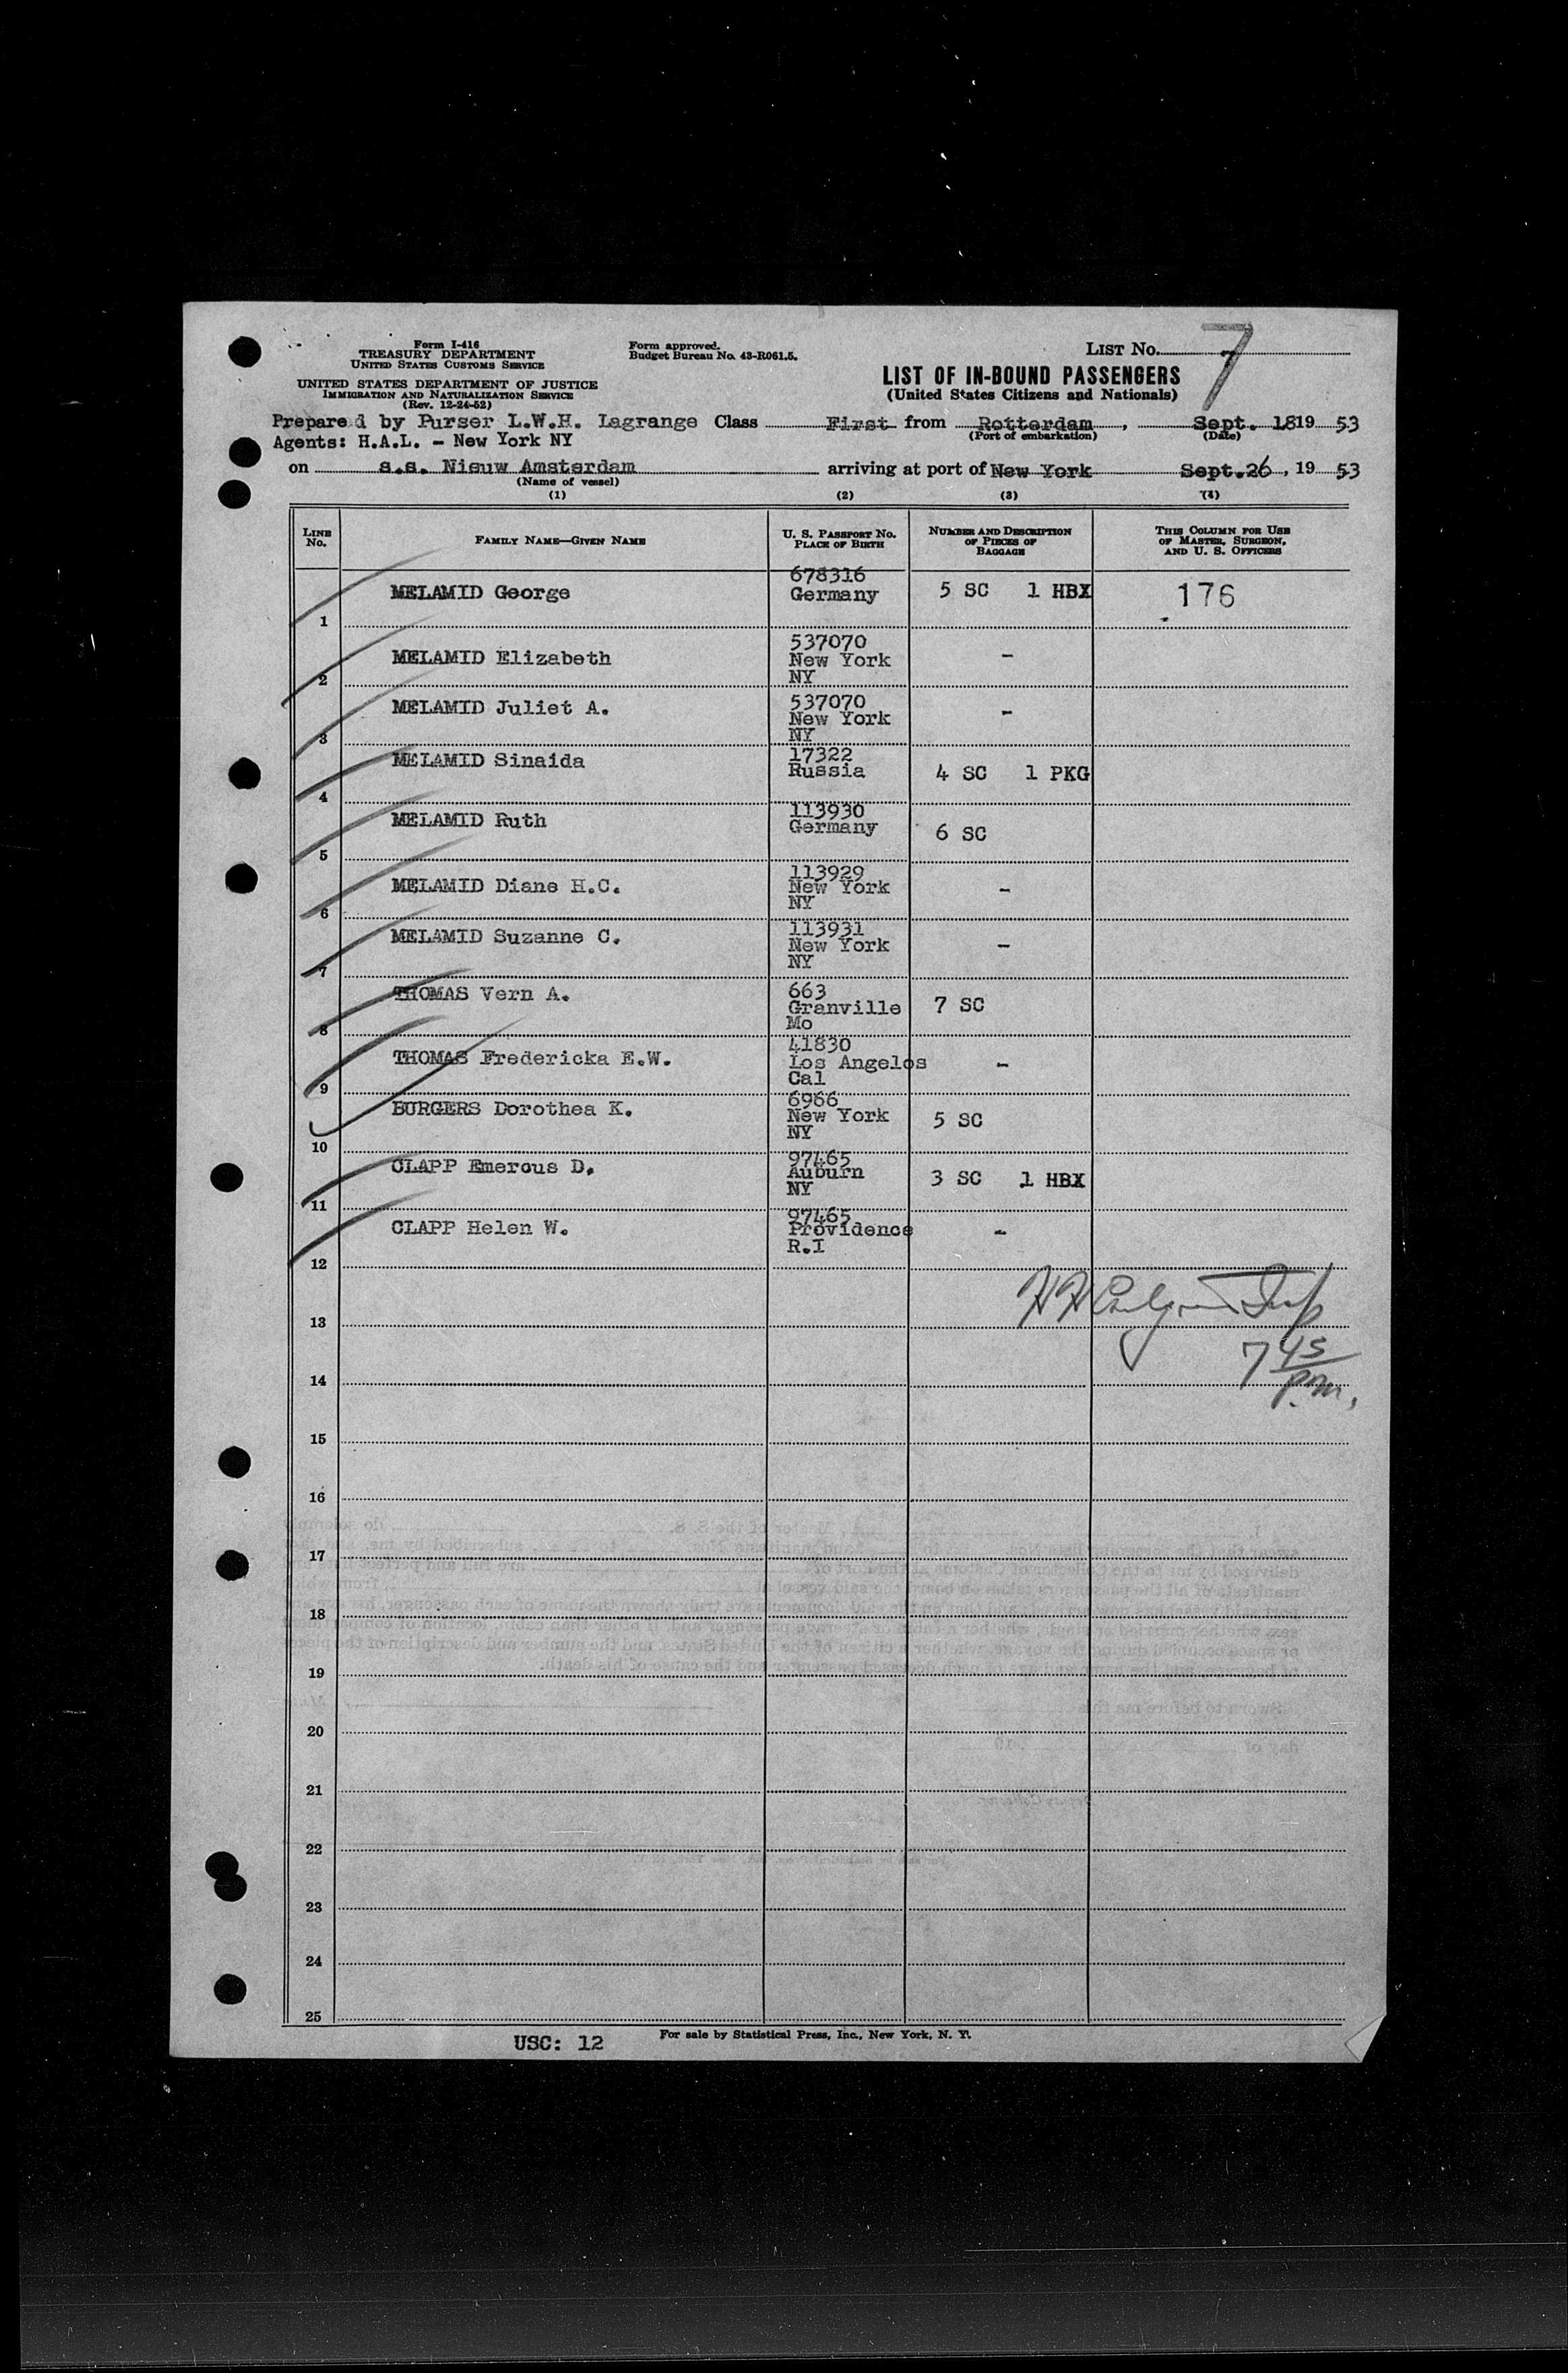 Form I-416
TREASURY DEPARTMENT
UNITED STATES CUSTOMS SERVICE
UNITED STATES DEPARTMENT OF JUSTICE
IMMIGRATION AND NATURALIZATION SERVICE
(Rev. 12-24-52)
Form approved.
Budget Bureau No. 43-R061.5.
LIST No. 7
7
LIST OF IN-BOUND PASSENGERS
(United States Citizens and Nationals)
Prepared by Purser L.W.H. Lagrange Class First from Rotterdam, Sept. 18 19 53
(Port of embarkation) (Date)
Agents: H.A.L. - New York NY
on s.s. Nieuw Amsterdam arriving at port of New York Sept. 26, 19 53
(Name of vessel)
(1) (2) (3) (4)
LINE No. FAMILY NAME—GIVEN NAME U. S. PASSPORT No. PLACE OF BIRTH NUMBER AND DESCRIPTION OF PIECES OF BAGGAGE THIS COLUMN FOR USE OF MASTER, SURGEON, AND U. S. OFFICERS
1 MELAMID George 678316 Germany 5 SC 1 HBX 176
2 MELAMID Elizabeth 537070 New York NY -
3 MELAMID Juliet A. 537070 New York NY -
4 MELAMID Sinaida 17322 Russia 4 SC 1 PKG
5 MELAMID Ruth 113930 Germany 6 SC
6 MELAMID Diane H.C. 113929 New York NY -
7 MELAMID Suzanne C. 113931 New York NY -
8 THOMAS Vern A. 663 Granville Mo 7 SC
9 THOMAS Fredericka E.W. 41830 Los Angelos Cal -
10 BURGERS Dorothea K. 6966 New York NY 5 SC
11 CLAPP Emerous D. 97465 Auburn NY 3 SC 1 HBX
12 CLAPP Helen W. 97465 Providence R.I -
13
7 45 p.m.
14
15
16
17
18
19
20
21
22
23
24
25
USC: 12
For sale by Statistical Press, Inc., New York, N. Y.